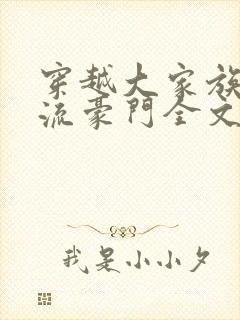 穿越大家族
流豪門全文
我是小小夕